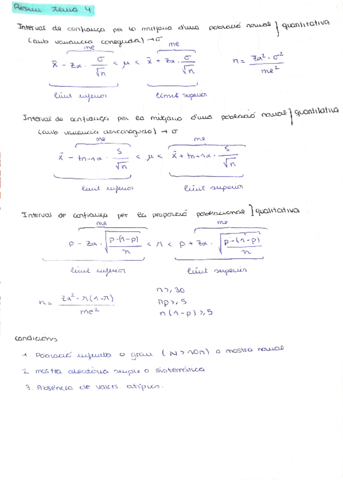 Resum tema 4
Interval de confiança per la mitjana d'una població normal } quantitativa
(amb variància coneguda) → σ
me me
x̄ - zα · σ/√n < μ < x̄ + zα · σ/√n n = zα² · σ² / me²
límit inferior límit superior
Interval de confiança per la mitjana d'una població normal } quantitativa
(amb variància desconeguda) → σ
me me
x̄ - tn-1α · s/√n < μ < x̄ + tn-1α · s/√n
límit inferior límit superior
Interval de confiança per la proporció poblacional } qualitativa
me me
p - zα · √p·(1-p)/n < π < p + zα · √p·(1-p)/n
límit inferior límit superior
n = zα² · π(1-π) / me² n ≥ 30
np ≥ 5
n(1-p) ≥ 5
condicions
1. Població infinita o gran (N > 10n) o mostra normal
2. mostra aleatòria simple o sistemàtica
3. Absència de valors atípics.